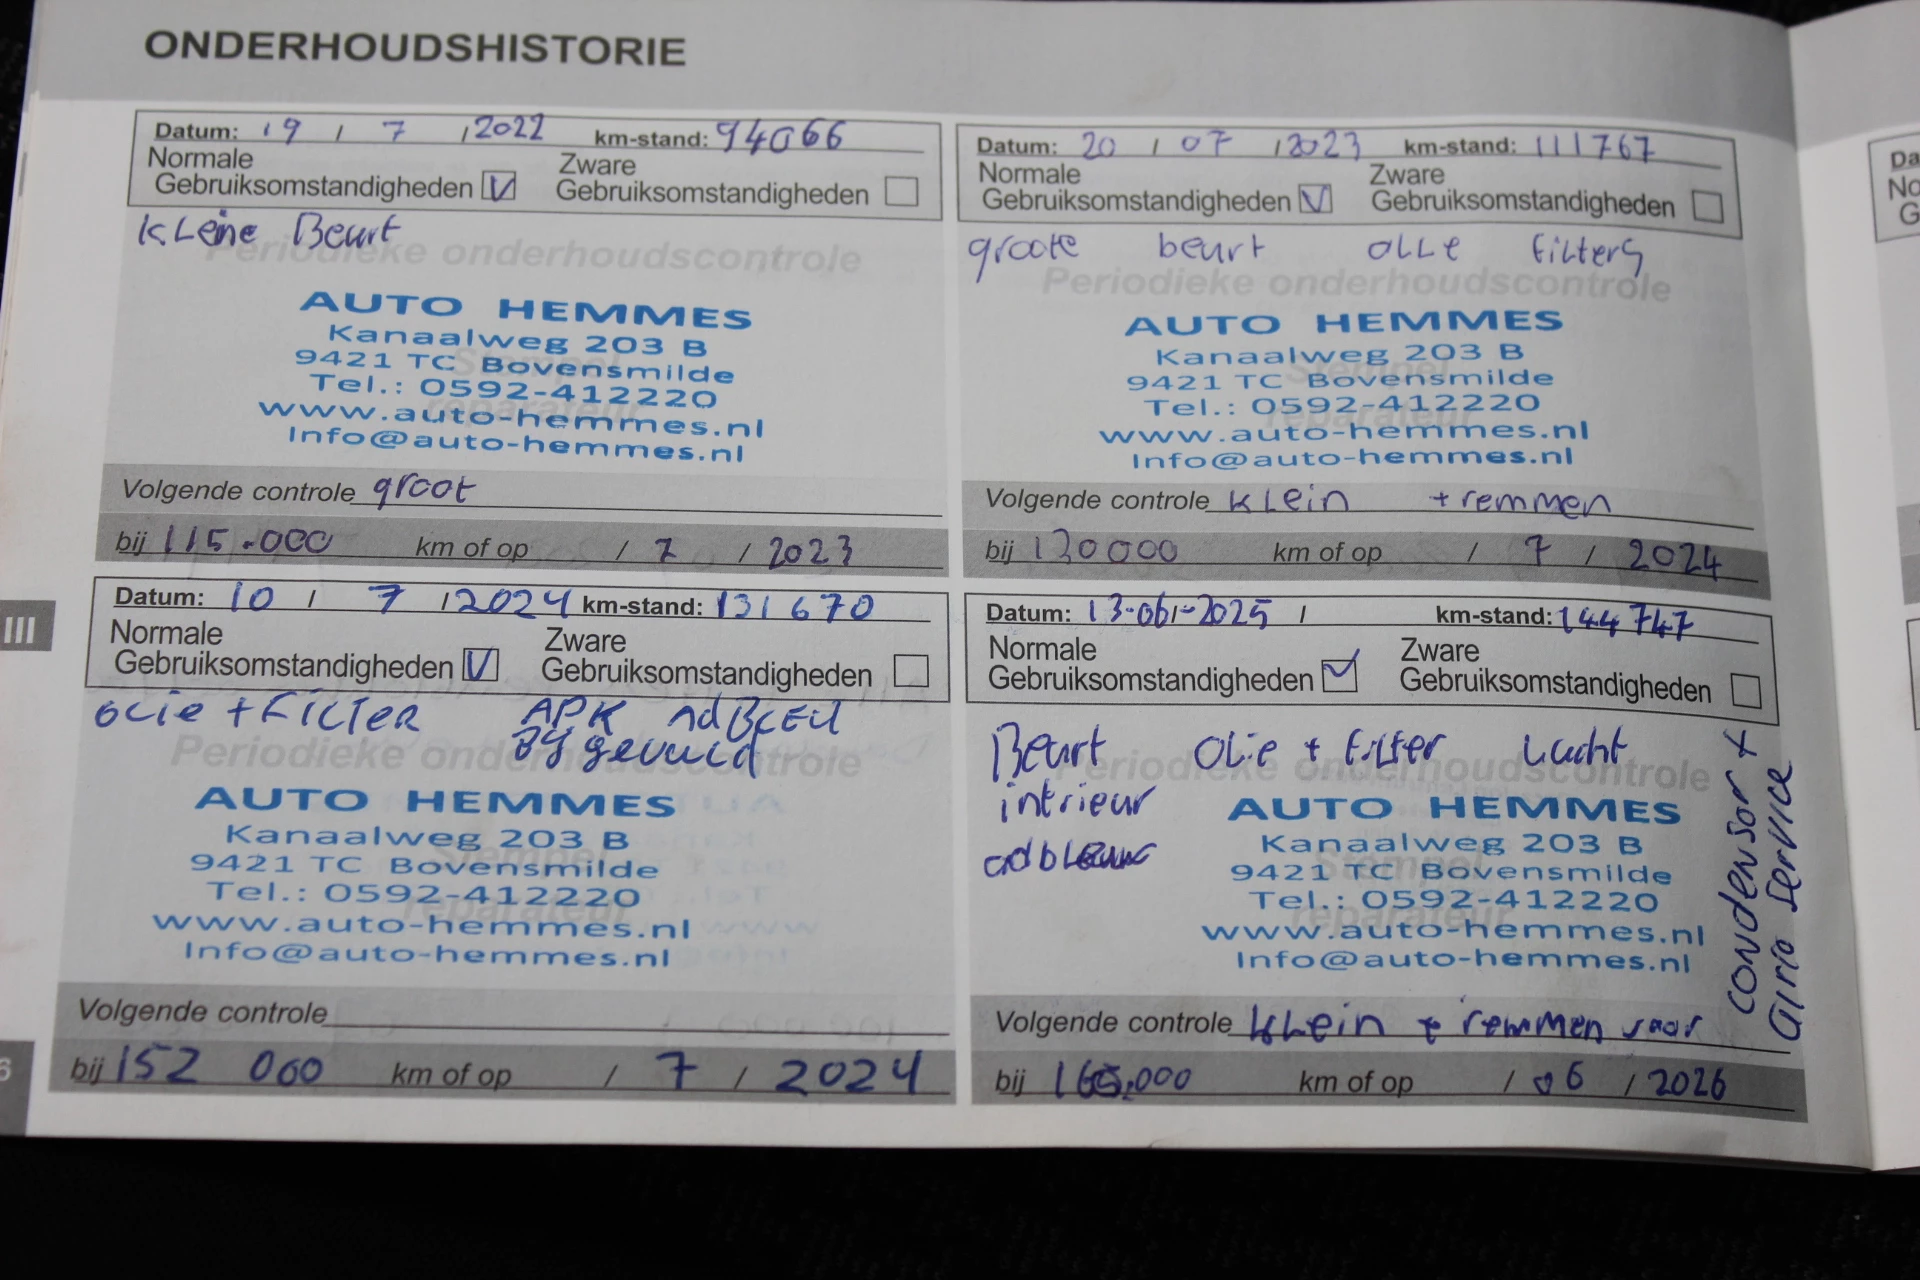 ONDERHOUDSHISTORIE
Datum: 19 / 7 / 2022 km-stand: 94066
Normale Zware
Gebruiksomstandigheden V Gebruiksomstandigheden
kLeine Beurt
Periodieke onderhoudscontrole
Stempel
reparateur
AUTO HEMMES
Kanaalweg 203 B
9421 TC Bovensmilde
Tel.: 0592-412220
www.auto-hemmes.nl
Info@auto-hemmes.nl
Volgende controle groot
bij 115.000 km of op / 7 / 2023
Datum: 20 / 07 / 2023 km-stand: 111767
Normale Zware
Gebruiksomstandigheden V Gebruiksomstandigheden
groote beurt aLLe filters
Periodieke onderhoudscontrole
Stempel
reparateur
AUTO HEMMES
Kanaalweg 203 B
9421 TC Bovensmilde
Tel.: 0592-412220
www.auto-hemmes.nl
Info@auto-hemmes.nl
Volgende controle kLein + remmen
bij 130000 km of op / 7 / 2024
Datum: 10 / 7 / 2024 km-stand: 131670
Normale Zware
Gebruiksomstandigheden V Gebruiksomstandigheden
oLie + FiLTER APK AdBLEU
Bijgevuld
Periodieke onderhoudscontrole
Stempel
reparateur
AUTO HEMMES
Kanaalweg 203 B
9421 TC Bovensmilde
Tel.: 0592-412220
www.auto-hemmes.nl
Info@auto-hemmes.nl
Volgende controle
bij 152 000 km of op / 7 / 2024
Datum: 13-06-2025 / km-stand: 144747
Normale Zware
Gebruiksomstandigheden Gebruiksomstandigheden
Beurt OLie + FiLter Lucht
intrieur
Periodieke onderhoudscontrole
Stempel
reparateur
AUTO HEMMES
Kanaalweg 203 B
9421 TC Bovensmilde
Tel.: 0592-412220
www.auto-hemmes.nl
Info@auto-hemmes.nl
condensor +
airio service
Volgende controle kLein + remmen voor
bij km of op / 06 / 2026
III
6
Da
No
G